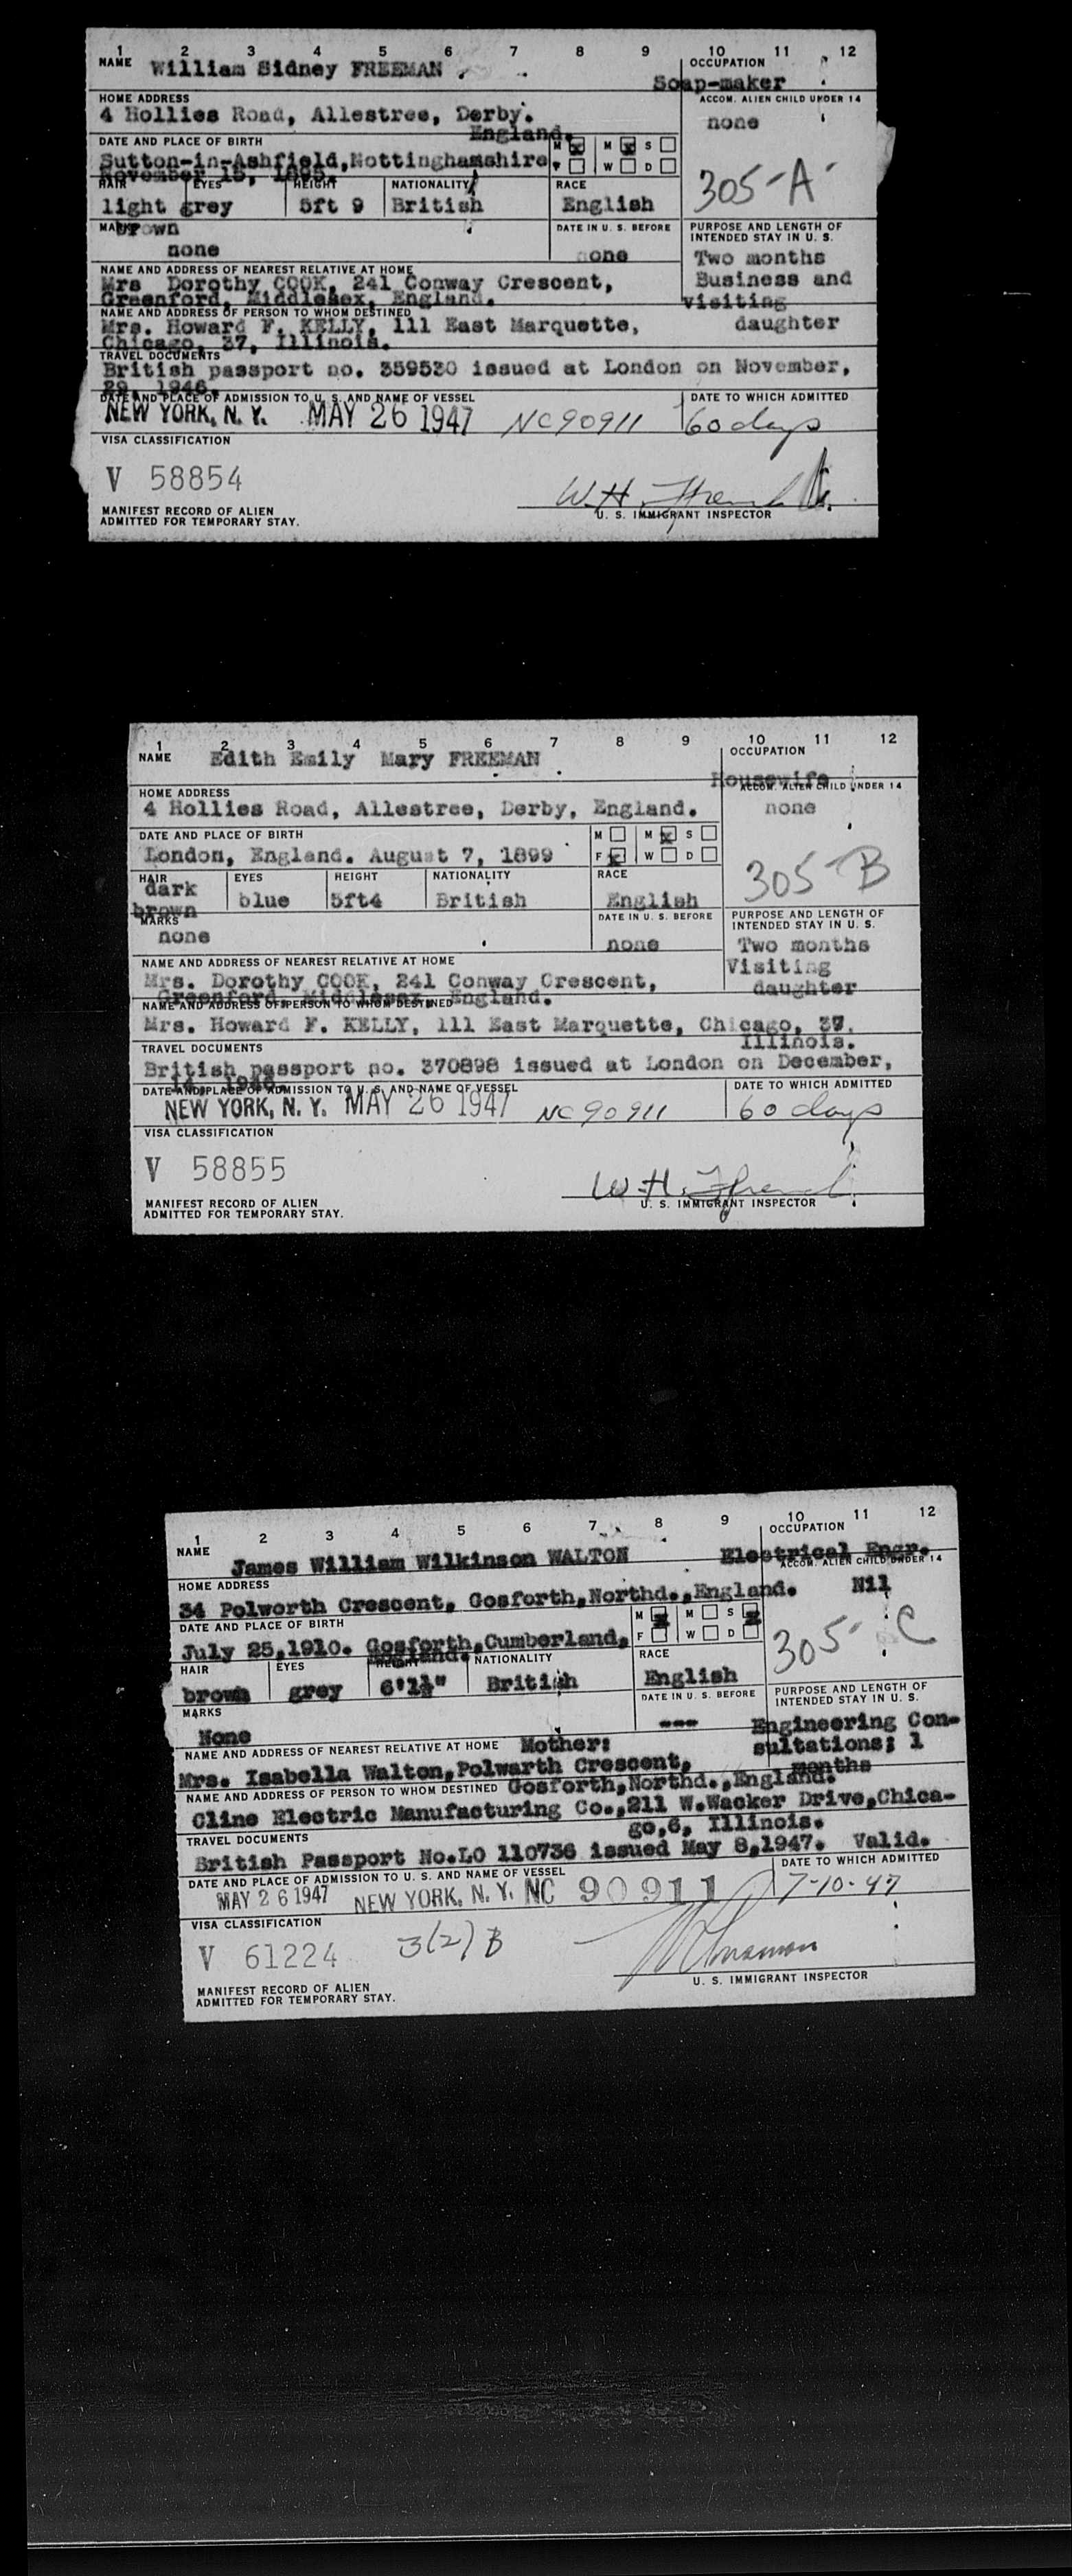 1 2 3 4 5 6 7 8 9 10 11 12
NAME William Sidney FREEMAN OCCUPATION
Soap-maker
HOME ADDRESS ACCOM. ALIEN CHILD UNDER 14
4 Hollies Road, Allestree, Derby. none
England.
DATE AND PLACE OF BIRTH M M S
Sutton-in-Ashfield, Nottinghamshire. F W D
November 15, 1895. 305-A
HAIR EYES HEIGHT NATIONALITY RACE
light grey 5ft 9 British English
brown
MARKS DATE IN U. S. BEFORE PURPOSE AND LENGTH OF
INTENDED STAY IN U. S.
none none Two months
NAME AND ADDRESS OF NEAREST RELATIVE AT HOME
Mrs Dorothy COOK, 241 Conway Crescent, Business and
Greenford, Middlesex, England. visiting
NAME AND ADDRESS OF PERSON TO WHOM DESTINED
Mrs. Howard F. KELLY, 111 East Marquette, daughter
Chicago, 37, Illinois.
TRAVEL DOCUMENTS
British passport no. 359530 issued at London on November,
29, 1946.
DATE AND PLACE OF ADMISSION TO U. S. AND NAME OF VESSEL DATE TO WHICH ADMITTED
NEW YORK, N. Y. MAY 26 1947 NC90911 60 days
VISA CLASSIFICATION
V 58854
W. H.
U. S. IMMIGRANT INSPECTOR
MANIFEST RECORD OF ALIEN
ADMITTED FOR TEMPORARY STAY.
1 2 3 4 5 6 7 8 9 10 11 12
NAME Edith Emily Mary FREEMAN OCCUPATION
Housewife
HOME ADDRESS ACCOM. ALIEN CHILD UNDER 14
4 Hollies Road, Allestree, Derby, England. none
DATE AND PLACE OF BIRTH M M S
London, England. August 7, 1899 F W D
305-B
HAIR EYES HEIGHT NATIONALITY RACE
dark
brown blue 5ft4 British English
MARKS DATE IN U. S. BEFORE PURPOSE AND LENGTH OF
INTENDED STAY IN U. S.
none none Two months
NAME AND ADDRESS OF NEAREST RELATIVE AT HOME Visiting
Mrs. Dorothy COOK, 241 Conway Crescent, daughter
Greenford, Middlesex, England.
NAME AND ADDRESS OF PERSON TO WHOM DESTINED
Mrs. Howard F. KELLY, 111 East Marquette, Chicago, 37,
Illinois.
TRAVEL DOCUMENTS
British passport no. 370898 issued at London on December,
14, 1946.
DATE AND PLACE OF ADMISSION TO U. S. AND NAME OF VESSEL DATE TO WHICH ADMITTED
NEW YORK, N. Y. MAY 26 1947 NC90911 60 days
VISA CLASSIFICATION
V 58855
W. H.
U. S. IMMIGRANT INSPECTOR
MANIFEST RECORD OF ALIEN
ADMITTED FOR TEMPORARY STAY.
1 2 3 4 5 6 7 8 9 10 11 12
NAME OCCUPATION
James William Wilkinson WALTON Electrical Engr.
HOME ADDRESS ACCOM. ALIEN CHILD UNDER 14
34 Polworth Crescent, Gosforth, Northd., England. Nil
DATE AND PLACE OF BIRTH M M S
July 25, 1910. Gosforth, Cumberland, F W D
England. 305-C
HAIR EYES HEIGHT NATIONALITY RACE
brown grey 6'1½" British English
MARKS DATE IN U. S. BEFORE PURPOSE AND LENGTH OF
INTENDED STAY IN U. S.
None --- Engineering Con-
NAME AND ADDRESS OF NEAREST RELATIVE AT HOME Mother: sultations; 1
Mrs. Isabella Walton, Polwarth Crescent, months
NAME AND ADDRESS OF PERSON TO WHOM DESTINED Gosforth, Northd., England.
Cline Electric Manufacturing Co., 211 W. Wacker Drive, Chica-
go, 6, Illinois.
TRAVEL DOCUMENTS
British Passport No. LO 110736 issued May 8, 1947. Valid.
DATE AND PLACE OF ADMISSION TO U. S. AND NAME OF VESSEL DATE TO WHICH ADMITTED
MAY 26 1947 NEW YORK, N. Y. NC 90911 7-10-47
VISA CLASSIFICATION
V 61224 3(2)B
U. S. IMMIGRANT INSPECTOR
MANIFEST RECORD OF ALIEN
ADMITTED FOR TEMPORARY STAY.